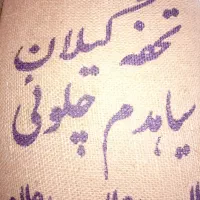 تحفه گیلان
سیاهدم چلوئی